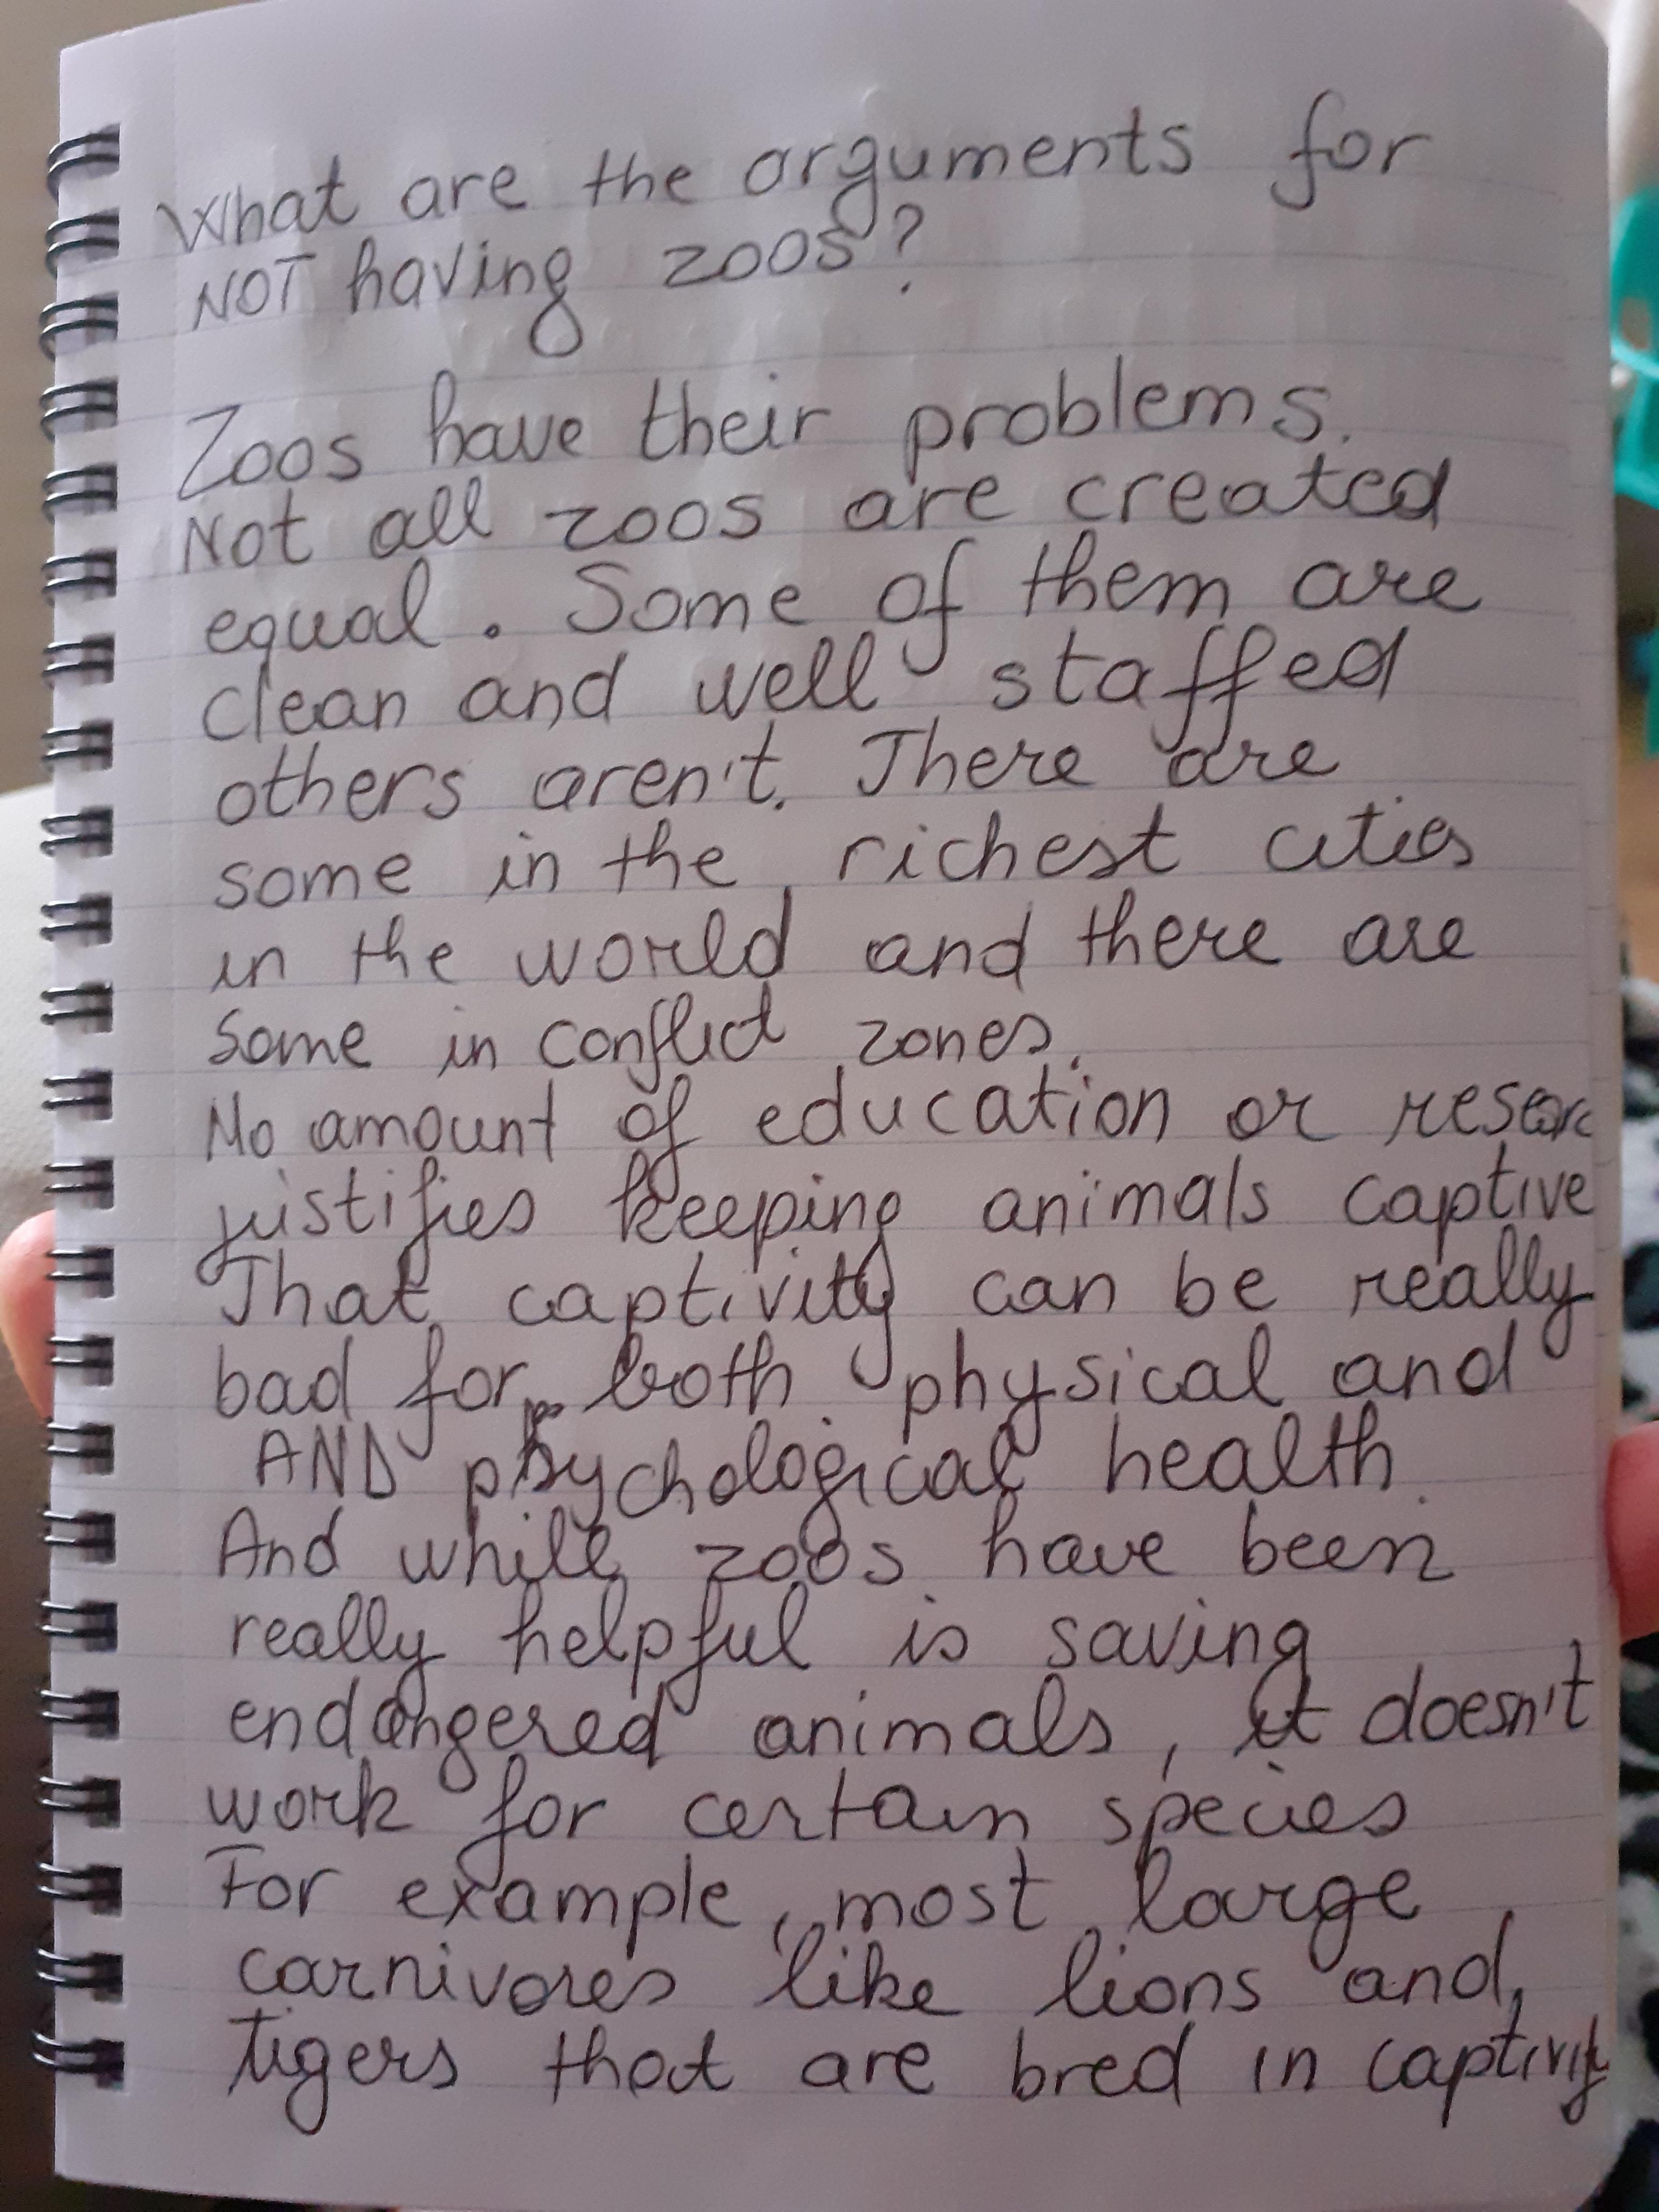 What are the arguments for
NOT having zoos?
Zoos have their problems.
Not all zoos are created
equal. Some of them are
clean and well staffed
others aren't. There are
some in the richest cities
in the world and there are
some in conflict zones.
No amount of education or researc
justifies keeping animals captive
That captivity can be really
bad for both physical and
AND psychological health.
And while zoos have been
really helpful is saving
endangered animals, it doesn't
work for certain species
For example, most large
carnivores like lions and,
tigers that are bred in captivity